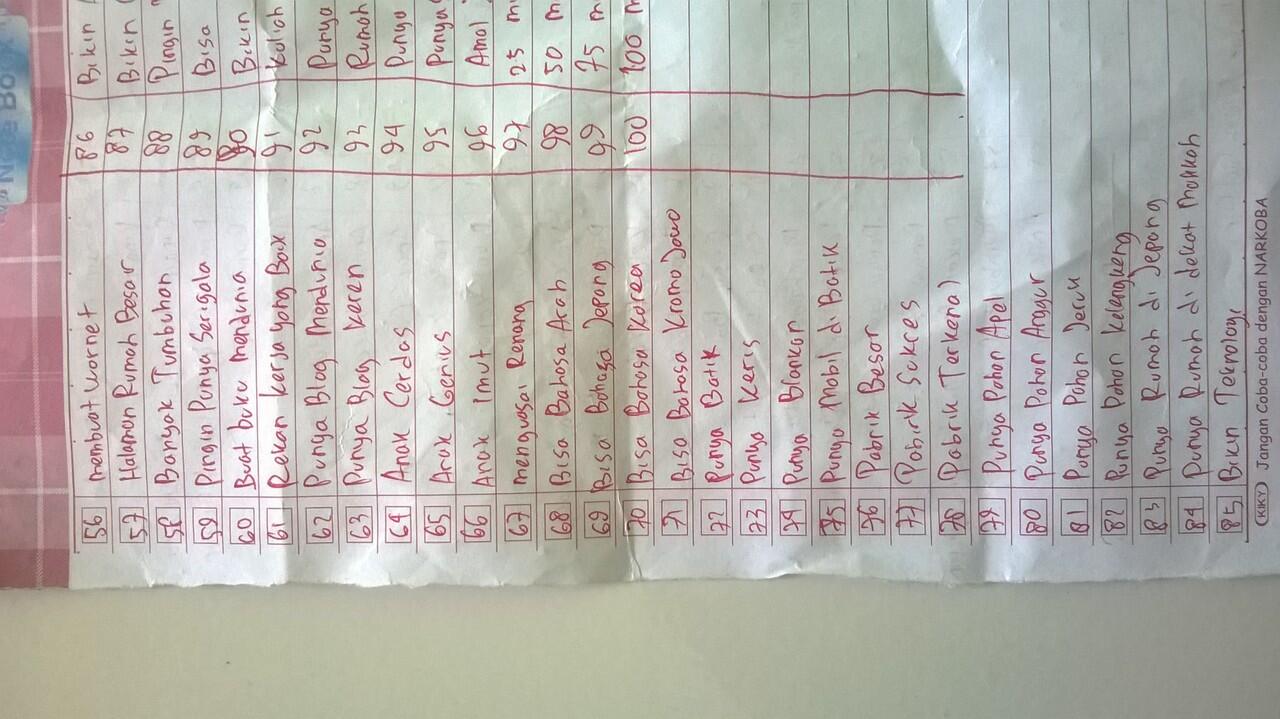 56 membuat wornet
57 Halaman Rumah Besar
58 Banyak Tumbuhan
59 Pingin Punya Serigala
60 Buat buku mendunia
61 Rekan kerja yang Baik
62 Punya Blog Mendunia
63 Punya Blog keren
64 Anak Cerdas
65 Anak Genius
66 Anak Imut
67 menguasai Renang
68 Bisa Bahasa Arab
69 Bisa Bahasa Jepang
70 Bisa Bahasa Korea
71 Bisa Bahasa Kromo Jawa
72 Punya Batik
73 Punya Keris
74 Punya Blankon
75 Punya Mobil di Batik
76 Pabrik Besar
77 Pabrik Sukses
78 Pabrik Terkenal
79 Punya Pohon Apel
80 Punya Pohon Anggur
81 Punya Pohon Jeruk
82 Punya Pohon Kelengkeng
83 Punya Rumah di Jepang
84 Punya Rumah di dekat Makkah
85 Bikin Teknologi
86 Bikin
87 Bikin
88 Pingin
89 Bisa
90 Bikin
91 Kuliah
92 Punya
93 Rumah
94 Punya
95 Punya
96 Amal
97 25 m
98 50 m
99 75 m
100 100 m
KIKY Jangan Coba-coba dengan NARKOBA